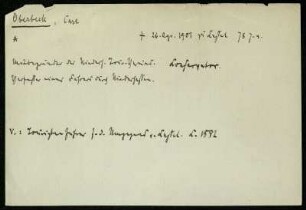 Oberbeck, Carl
* † 26. Apr. 1908 zu Kassel 76 J. a.
Mitbegründer des Niederh. Tour.-Vereins.
Verfasser eines Führers durch Niederhessen.
V.: Touristenführer f. d. Umgegend v. Kassel.